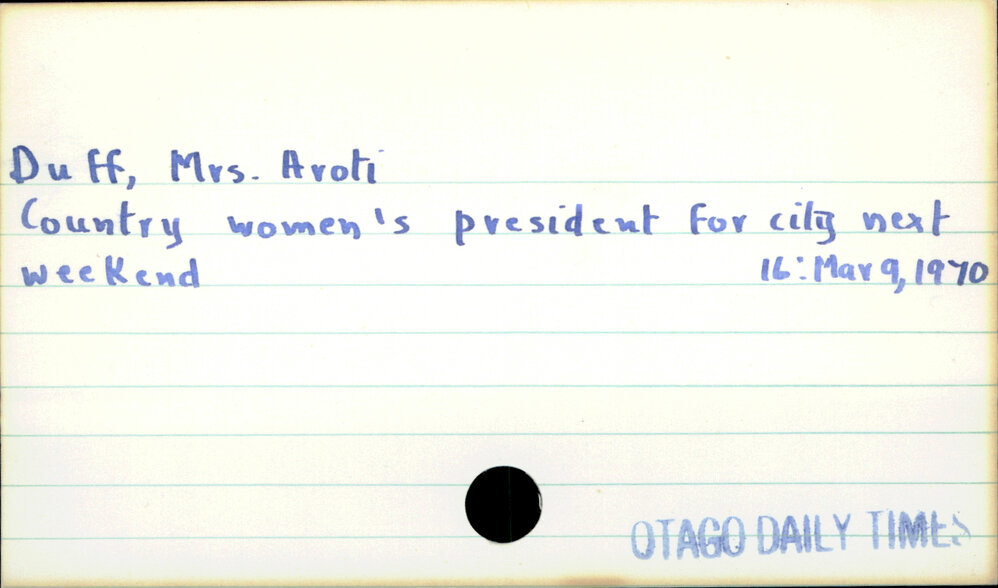 Duff, Mrs. Aroti
Country women's president for city next
weekend 16: Mar 9, 1970
OTAGO DAILY TIMES